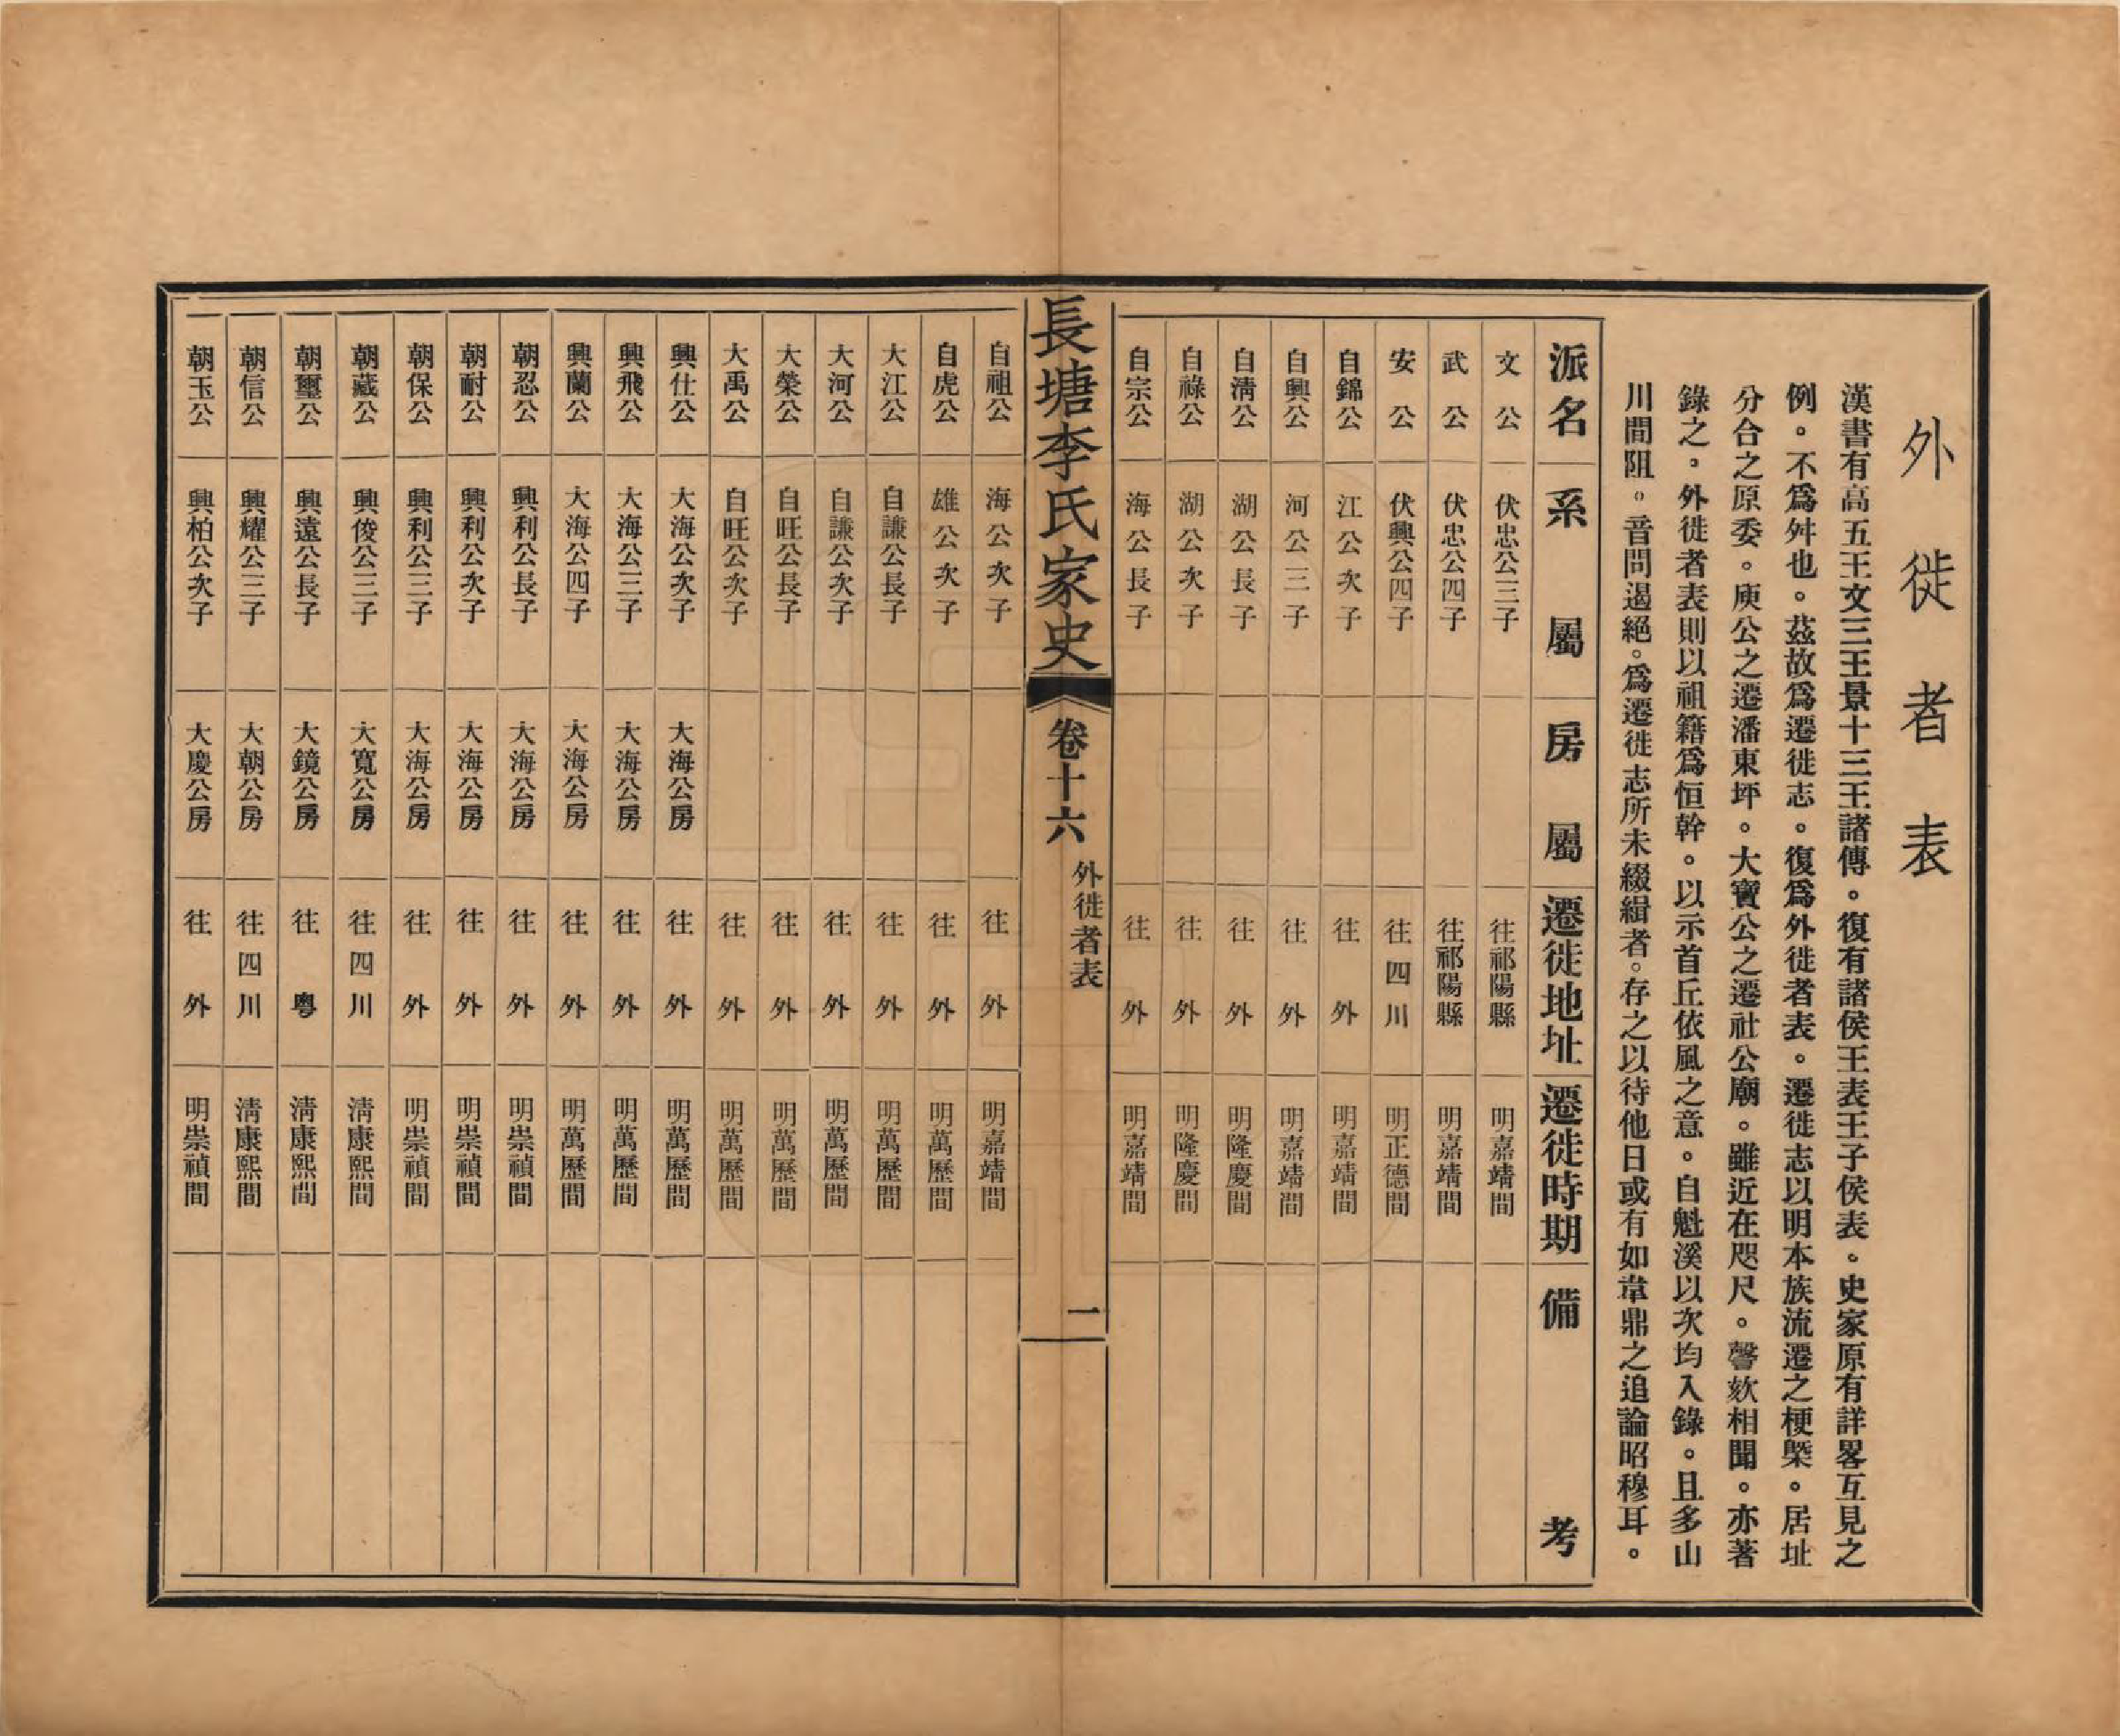 外徙者表
漢書有高五王文三王景十三王諸傳。復有諸侯王表王子侯表。史家原有詳畧互見之
例。不爲舛也。茲故爲遷徙志。復爲外徙者表。遷徙志以明本族流遷之梗槩。居址
分合之原委。庾公之遷潘東坪。大寶公之遷社公廟。雖近在咫尺。謦欬相聞。亦著
錄之。外徙者表則以祖籍爲恒幹。以示首丘依風之意。自魁溪以次均入錄。且多山
川間阻。音問遏絕。爲遷徙志所未綴緝者。存之以待他日或有如韋鼎之追論昭穆耳。
派名 系屬 房屬 遷徙地址 遷徙時期 備考
文公 伏忠公三子 往祁陽縣 明嘉靖間
武公 伏忠公四子 往祁陽縣 明嘉靖間
安公 伏興公四子 往四川 明正德間
自錦公 江公次子 往外 明嘉靖間
自興公 河公三子 往外 明嘉靖間
自淸公 湖公長子 往外 明隆慶間
自祿公 湖公次子 往外 明隆慶間
自宗公 海公長子 往外 明嘉靖間
長塘李氏家史 卷十六 外徙者表 一
自祖公 海公次子 往外 明嘉靖間
自虎公 雄公次子 往外 明萬歷間
大江公 自謙公長子 往外 明萬歷間
大河公 自謙公次子 往外 明萬歷間
大榮公 自旺公長子 往外 明萬歷間
大禹公 自旺公次子 往外 明萬歷間
興仕公 大海公次子 大海公房 往外 明萬歷間
興飛公 大海公三子 大海公房 往外 明萬歷間
興蘭公 大海公四子 大海公房 往外 明萬歷間
朝忍公 興利公長子 大海公房 往外 明崇禎間
朝耐公 興利公次子 大海公房 往外 明崇禎間
朝保公 興利公三子 大海公房 往外 明崇禎間
朝藏公 興俊公三子 大寬公房 往四川 淸康熙間
朝璽公 興遠公長子 大鏡公房 往粵 淸康熙間
朝信公 興耀公三子 大朝公房 往四川 淸康熙間
朝玉公 興柏公次子 大慶公房 往外 明崇禎間